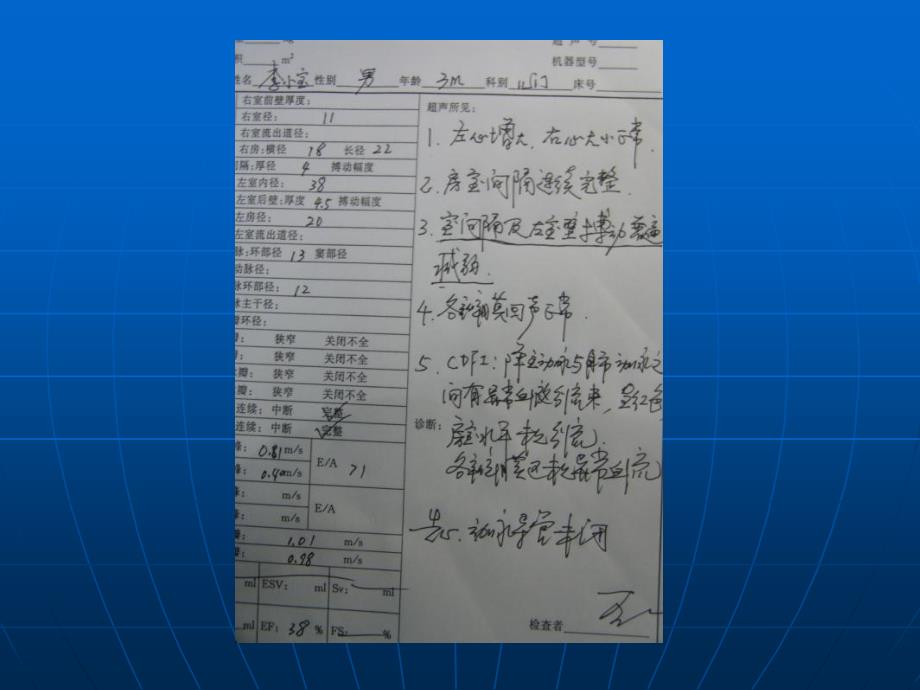 超声号
m²
机器型号
姓名 李小宝 性别 男 年龄 3m 科别 心门 床号
右室前壁厚度：
右室径： 11
右室流出道径：
右房：横径 18 长径 22
隔：厚径 4 搏动幅度
左室内径： 38
左室后壁：厚度 4.5 搏动幅度
左房径： 20
左室流出道径：
脉：环部径 13 窦部径
动脉径：
脉环部径： 12
脉主干径：
瓣环径：
狭窄 关闭不全
狭窄 关闭不全
瓣： 狭窄 关闭不全
瓣： 狭窄 关闭不全
连续： 中断 完整
连续： 中断 完整
峰： 0.81 m/s
E/A >1
峰： 0.40 m/s
峰： m/s
E/A
峰： m/s
瓣： 1.01 m/s
瓣： 0.98 m/s
ml ESV： ml Sv： ml
ml EF： 38 % FS： %
超声所见：
1. 左心增大，右心大小正常
2. 房室间隔连续完整.
3. 室间隔及左室壁搏动普遍
减弱.
4. 各瓣膜回声正常
5. CDFI：降主动脉与肺动脉之
间有异常血液分流束，呈红色
诊断：
房室水平未见分流.
各瓣膜区未见异常血流
先心. 动脉导管未闭
检查者